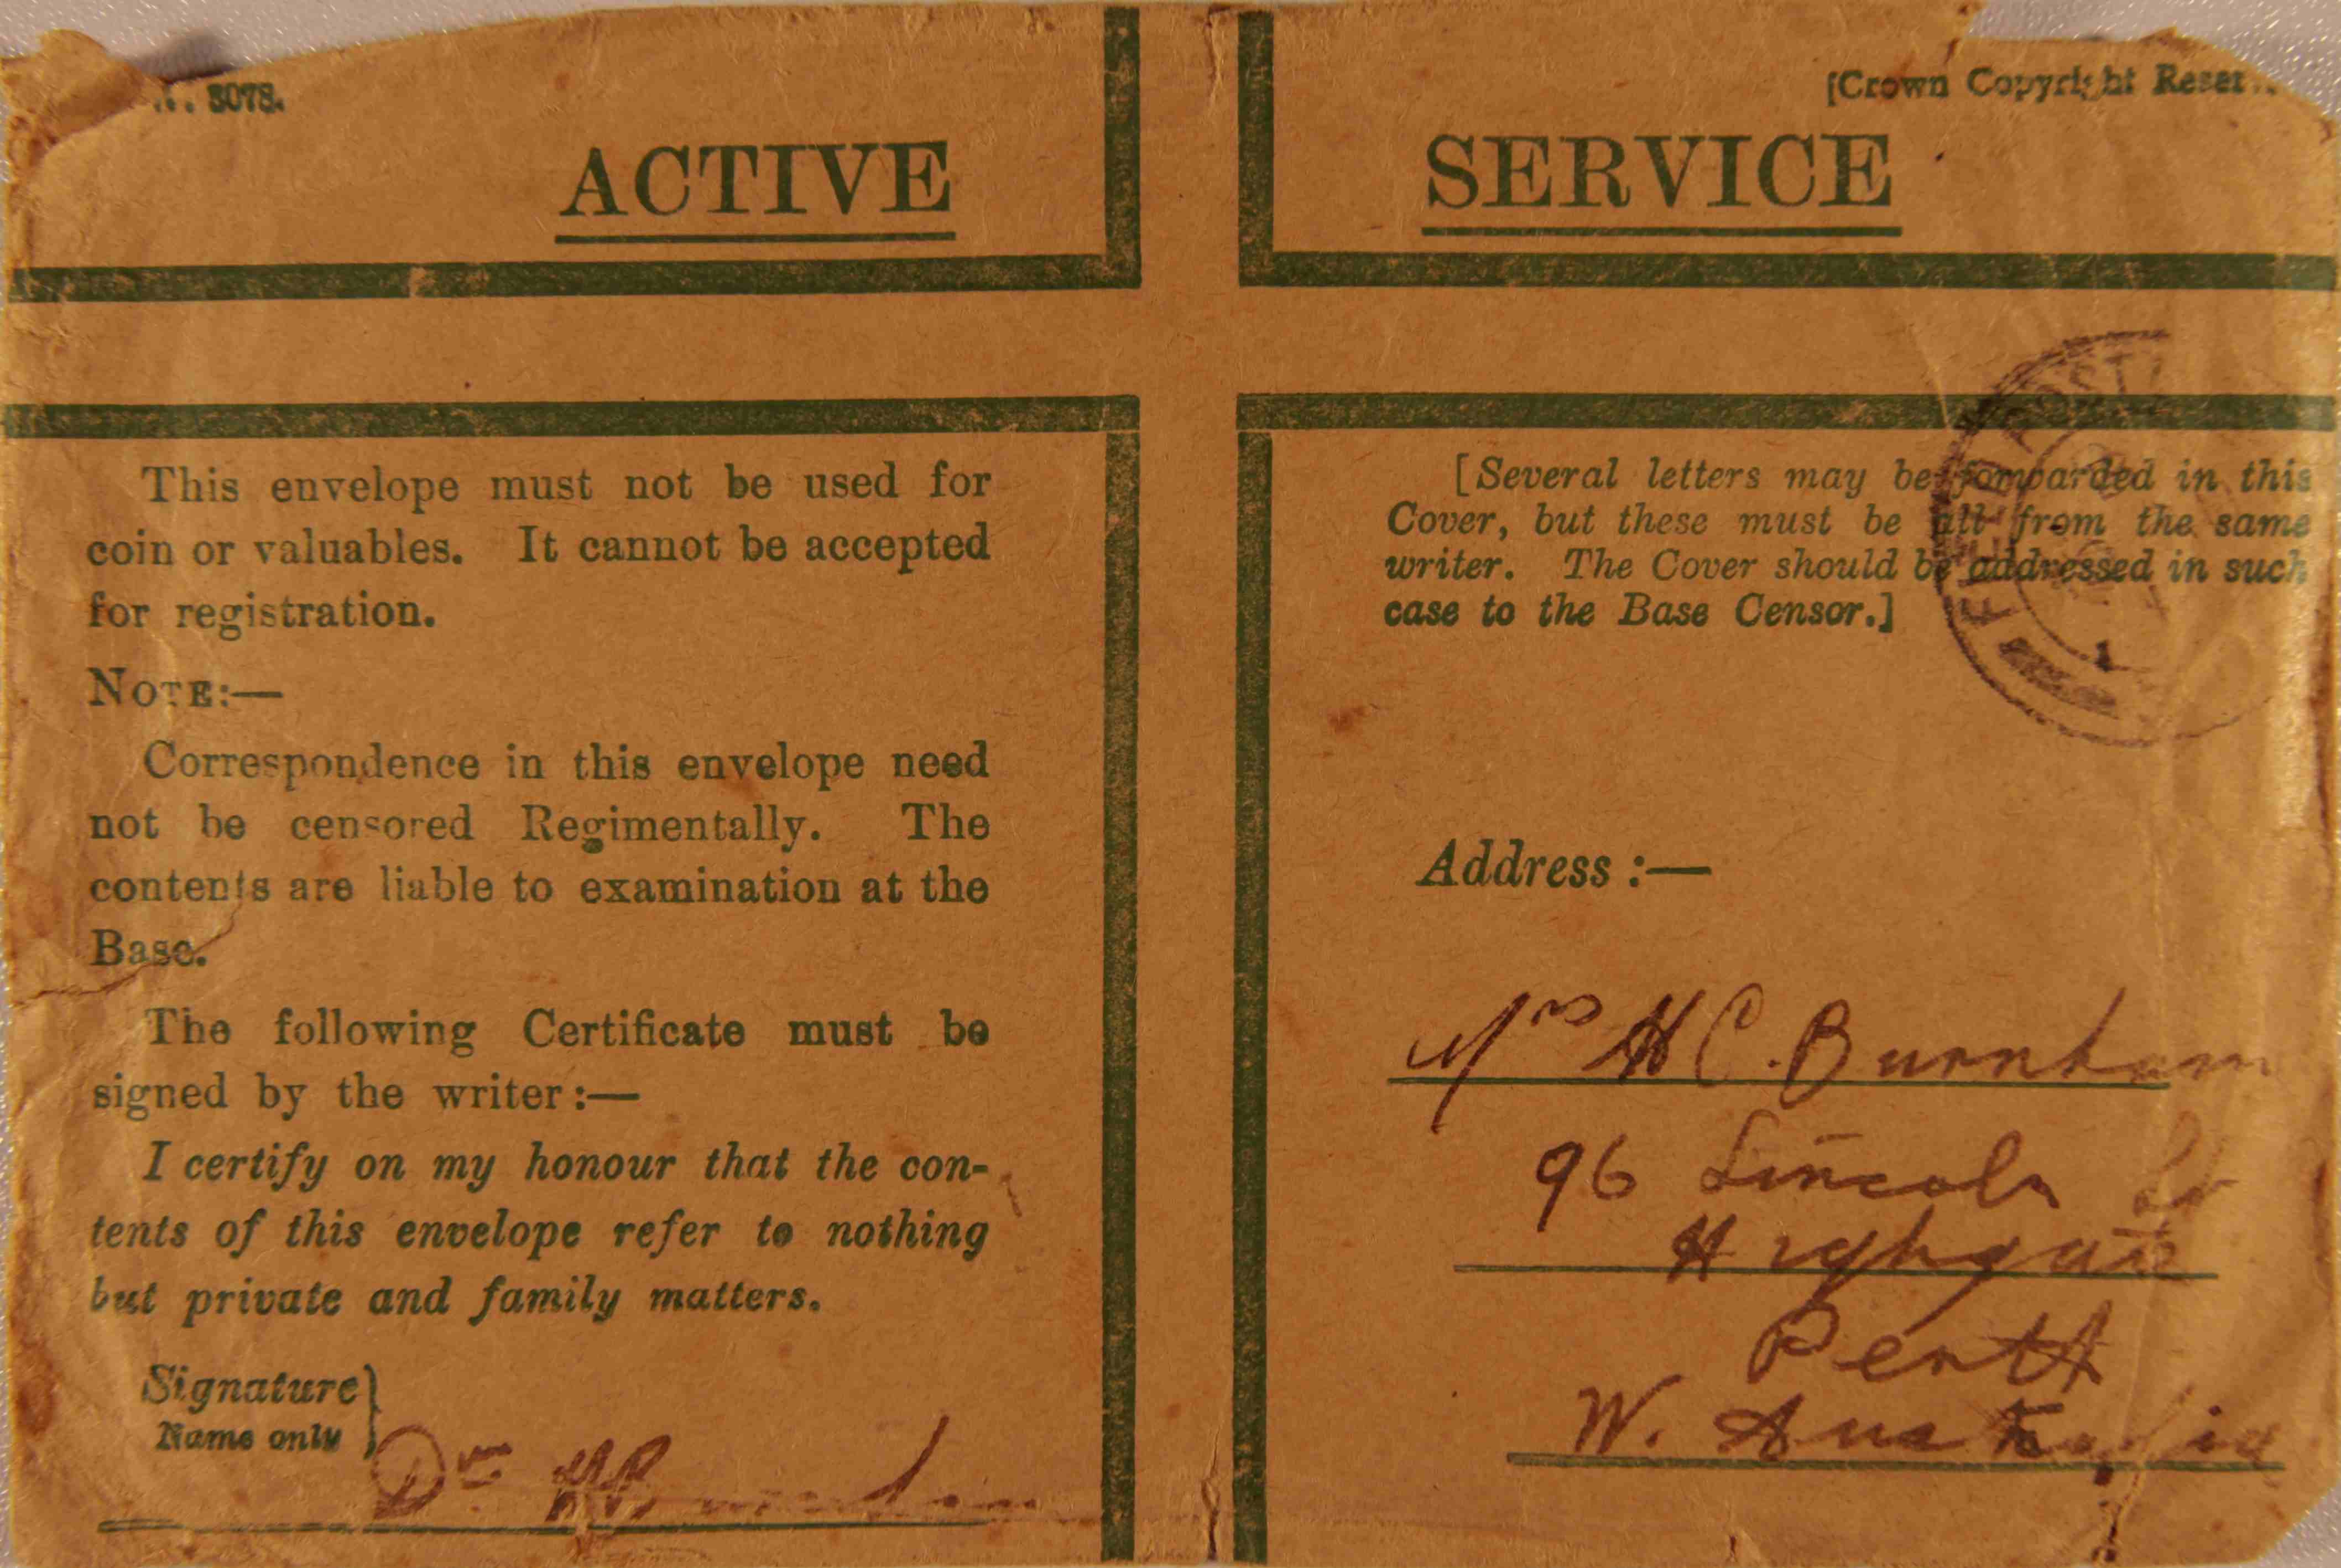 3078.
[Crown Copyright
ACTIVE SERVICE
This envelope must not be used for
coin or valuables. It cannot be accepted
for registration.
NOTE:—
Correspondence in this envelope need
not be censored Regimentally. The
contents are liable to examination at the
Base.
The following Certificate must be
signed by the writer:—
I certify on my honour that the con-
tents of this envelope refer to nothing
but private and family matters.
Signature
Name only
Dvr HBurnham
[Several letters may be forwarded in this
Cover, but these must be all from the same
writer. The Cover should be addressed in such
case to the Base Censor.]
FIELD POST
Address:—
Mrs H C. Burnham
96 Lincoln St
Highgate
Perth
W. Australia